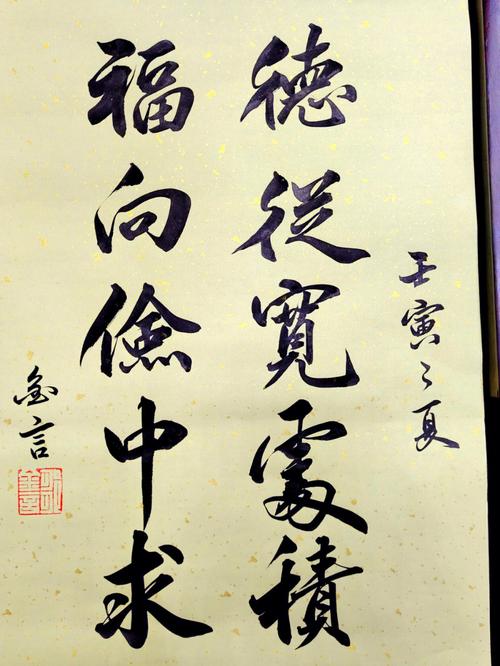 壬寅〻夏
德從寬處積
福向儉中求
金言